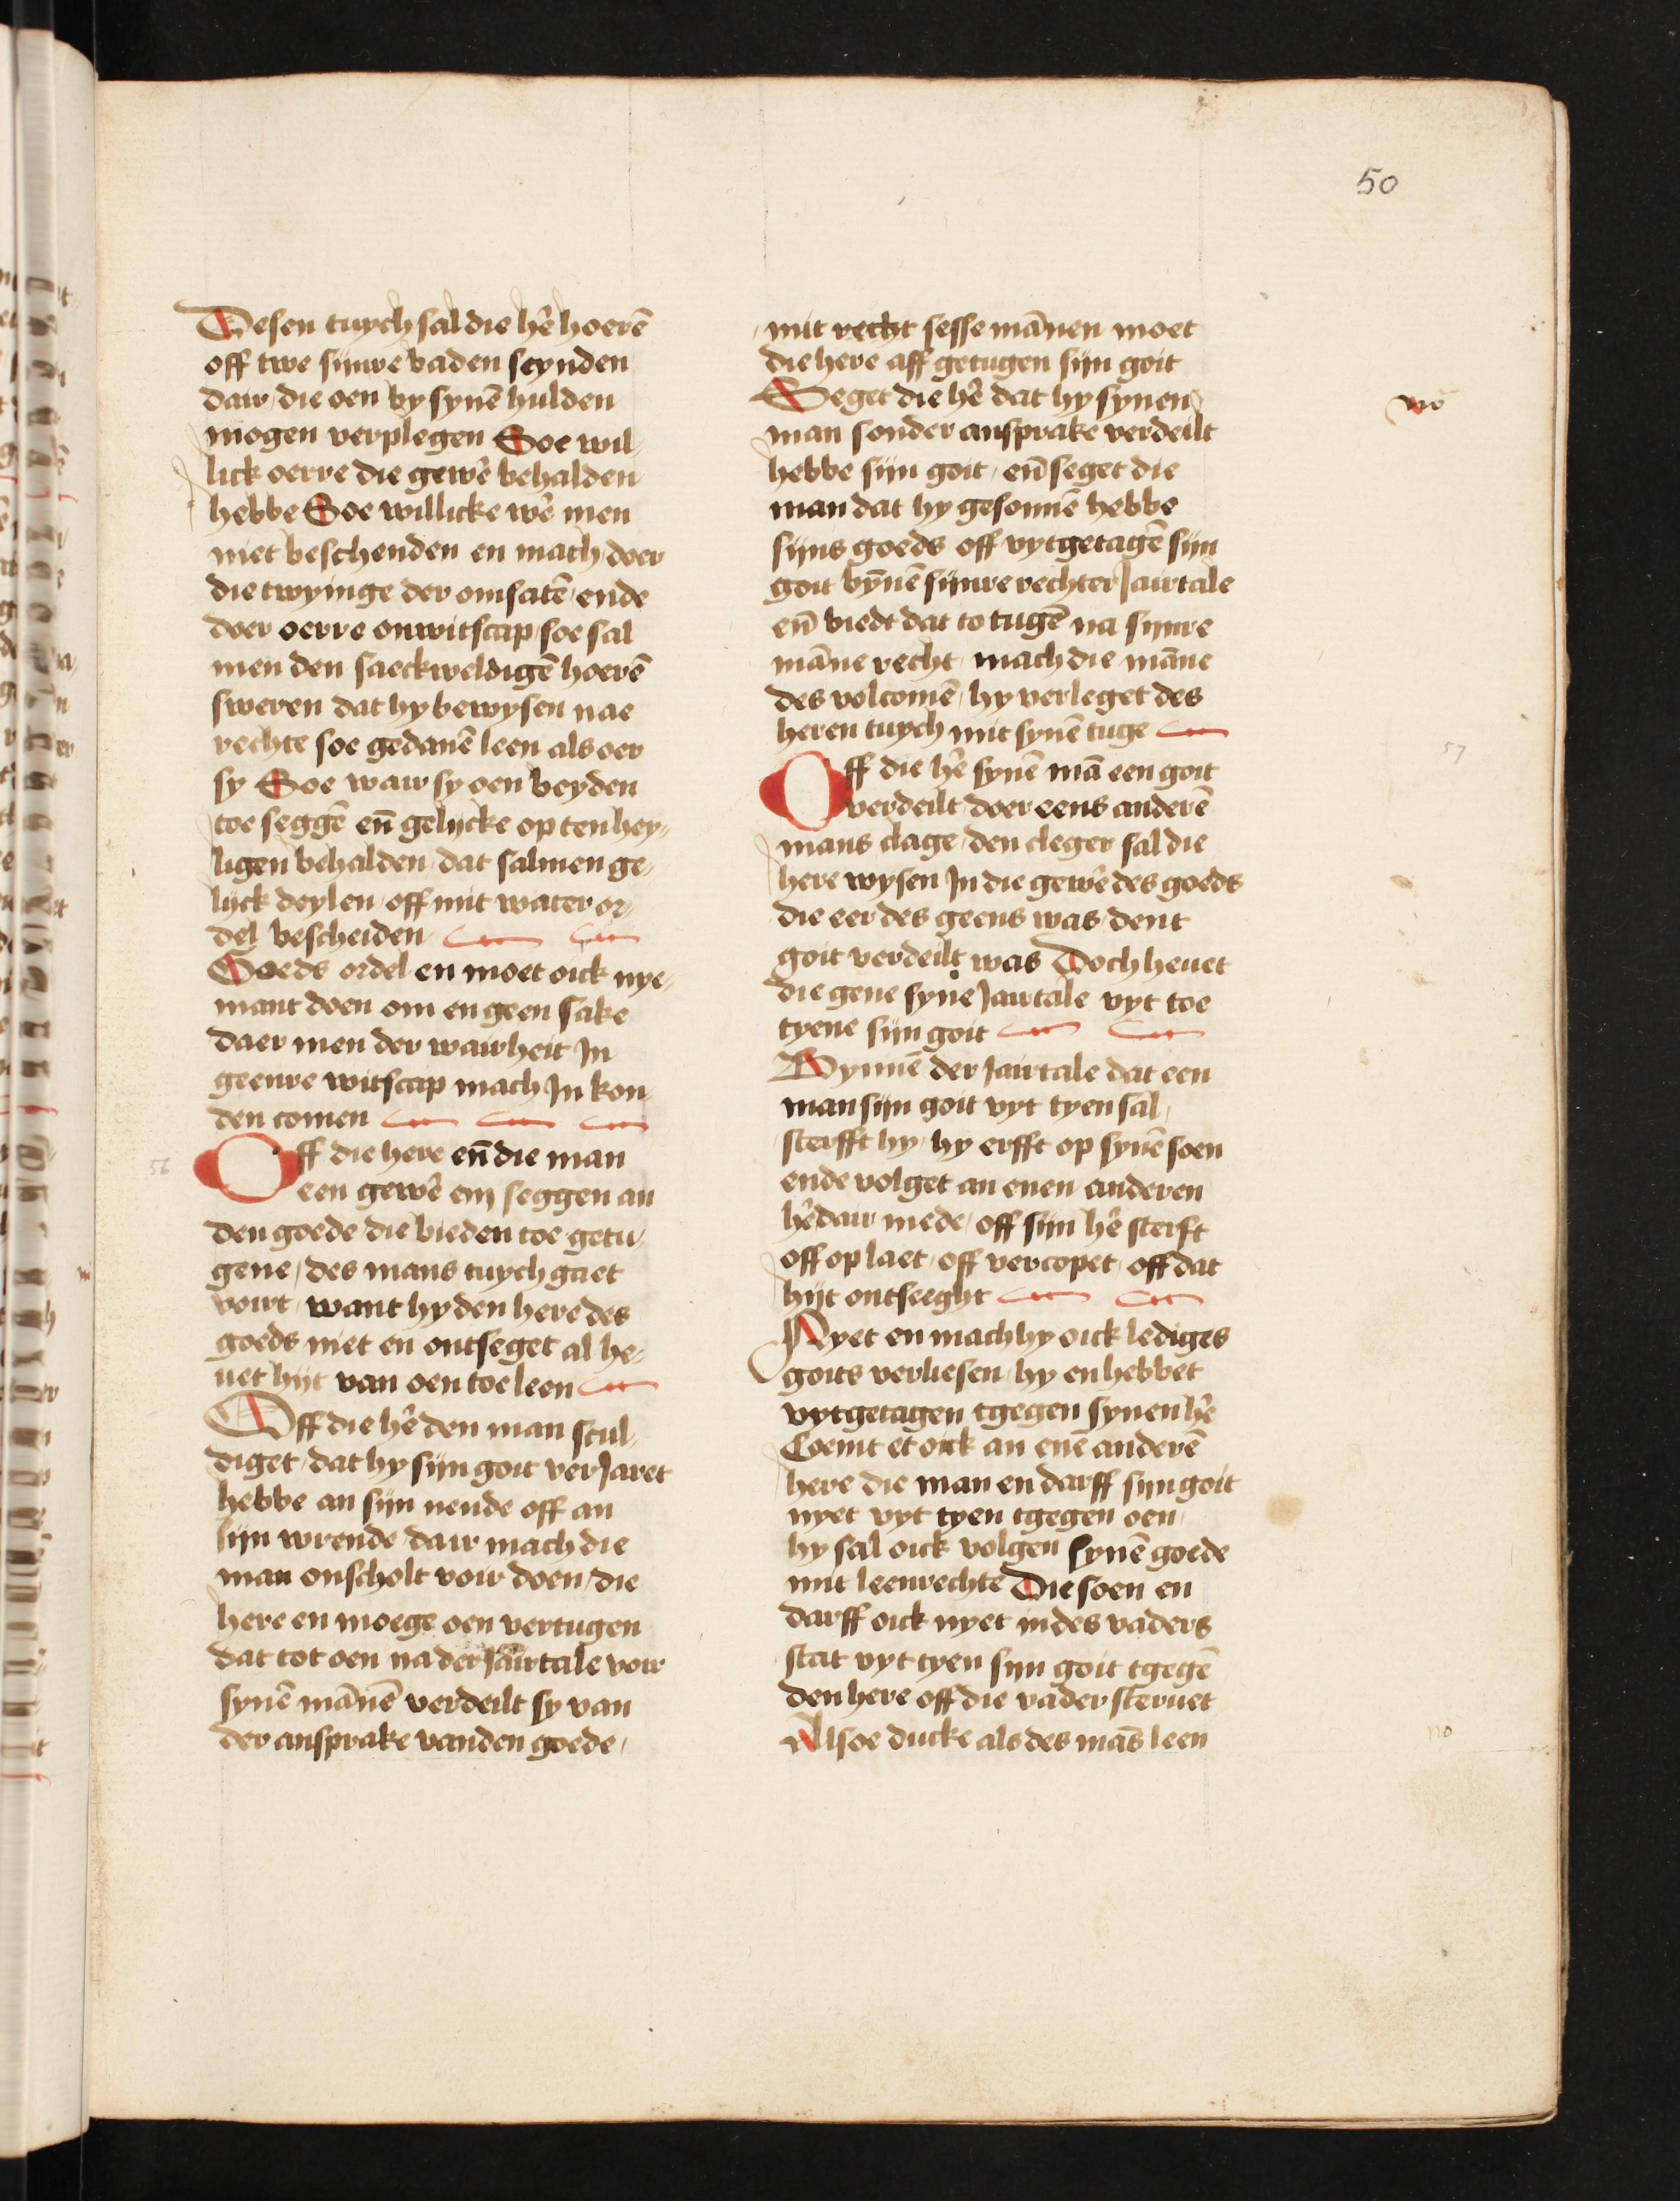 50
Desen tuych sal die hē hoerē
off twe sijnre baden seynden
dair die oen by synē hulden
mogen verplegen Soe wil
lick oerre die gewē behalden
hebbe Soe willicke wē men
niet beschenden en mach doer
die twyinge der omsatē ende
doer oerre onwitscap soe sal
men den saeckweldigē hoerē
sweren dat hy bewysen nae
rechte soe gedanē leen als oer
sy Soe wair sy oen beyden
toe seggē eñ gelycke op ten hey
ligen behalden dat salmen ge
lijck deylen off mit water or
del bescheiden
Goeds ordel en moet oick nye
mant doen om en geen sake
daer men der wairheit In
geenre witscap mach In kon
den comen
56
Off die here eñ die man
een gewē em seggen an
den goede die bieden toe getu
gene des mans tuych gaet
voirt want hy den here des
goeds niet en ontseget al he
uet hijt van oen toe leen
Off die hē den man scul
diget dat hy sijn goit verJaret
hebbe an sijn nende off an
sijn wrende dair mach die
man onscholt voir doen die
here en moege oen vertugen
dat tot oen na der Jairtale voir
synē mānē verdeilt sy van
der ansprake vanden goede
mit recht sesse mānen moet
die here aff getugen sijn goit
Seget die hē dat hy synen
man sonder ansprake verdeilt
hebbe sijn goit eñ seget die
man dat hy gesonnē hebbe
sijns goeds off vytgetagē sijn
goit bȳnē sijnre rechter Jairtale
eñ biedt dat to tugē na sijnre
māne recht mach die māne
des volcomē hy verleget des
heren tuych mit synē tuge
57
Off die hē synē mā een goit
verdeilt doer eens anderē
mans clage den cleger sal die
here wysen In die gewē des goeds
die eer des geens was dent
goit verdeilt was Doch heuet
die gene syne Jairtale vyt toe
tyene sijn goit
Bynnē der Jairtale dat een
man sijn goit vyt tyen sal
sterfft hy hy erfft op synē soen
ende volget an enen anderen
hē dair mede off sijn hē sterft
off op laet off vercopet off dat
hijt ontseeght
Nyet en mach hy oick lediges
goits verliesen hy en hebbet
vytgetagen tgegen synen hē
Coemt et oick an enē anderē
here die man en darff sijn goit
nyet vyt tyen tgegen oen
hy sal oick volgen synē goede
mit leenrechte Die soen en
darff oick nyet in des vaders
stat vyt tyen sijn goit tgegē
den here off die vader steruet
Alsoe ducke als des mās leen